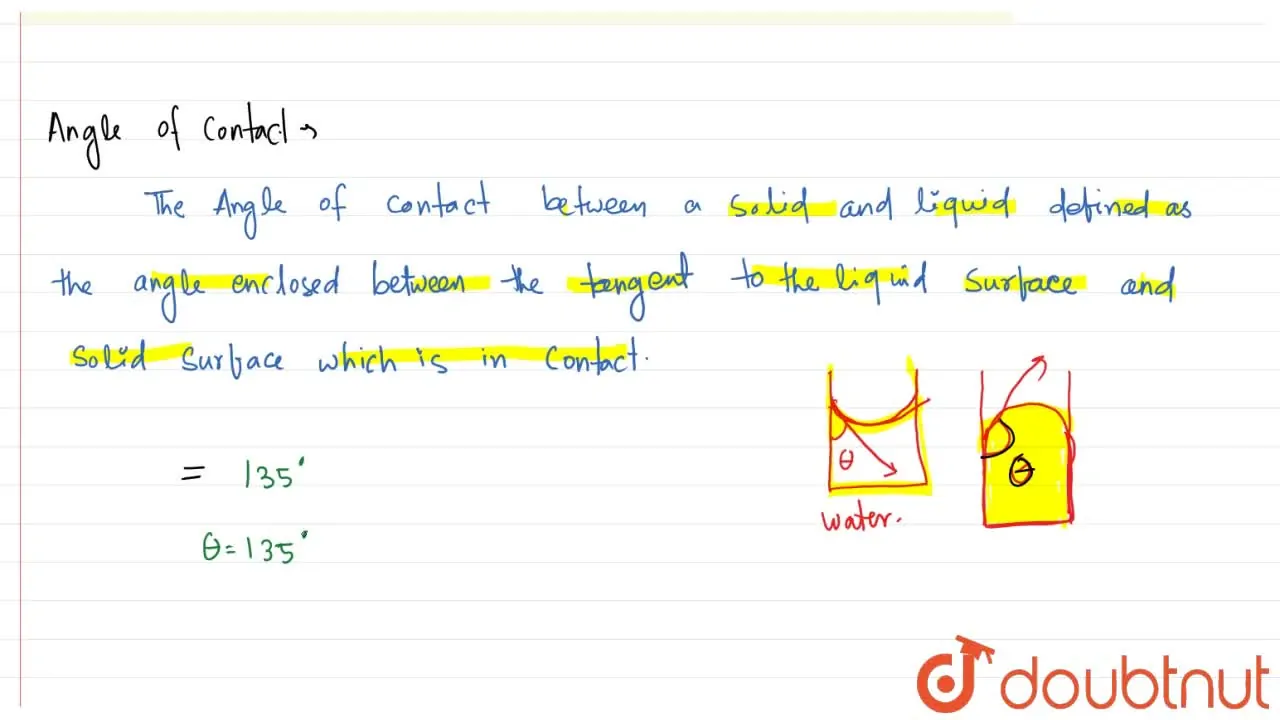 Angle of Contact →
The Angle of contact between a solid and liquid defined as
the angle enclosed between the tangent to the liquid surface and
solid surface which is in contact.
= 135°
θ = 135°
θ
water.
θ
doubtnut